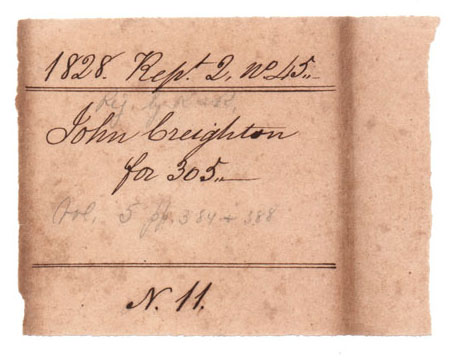 1828. Rept. 2, No 45,,
John Creighton
for 305,,
Vol. 5 pp. 384 + 388
N. 11.